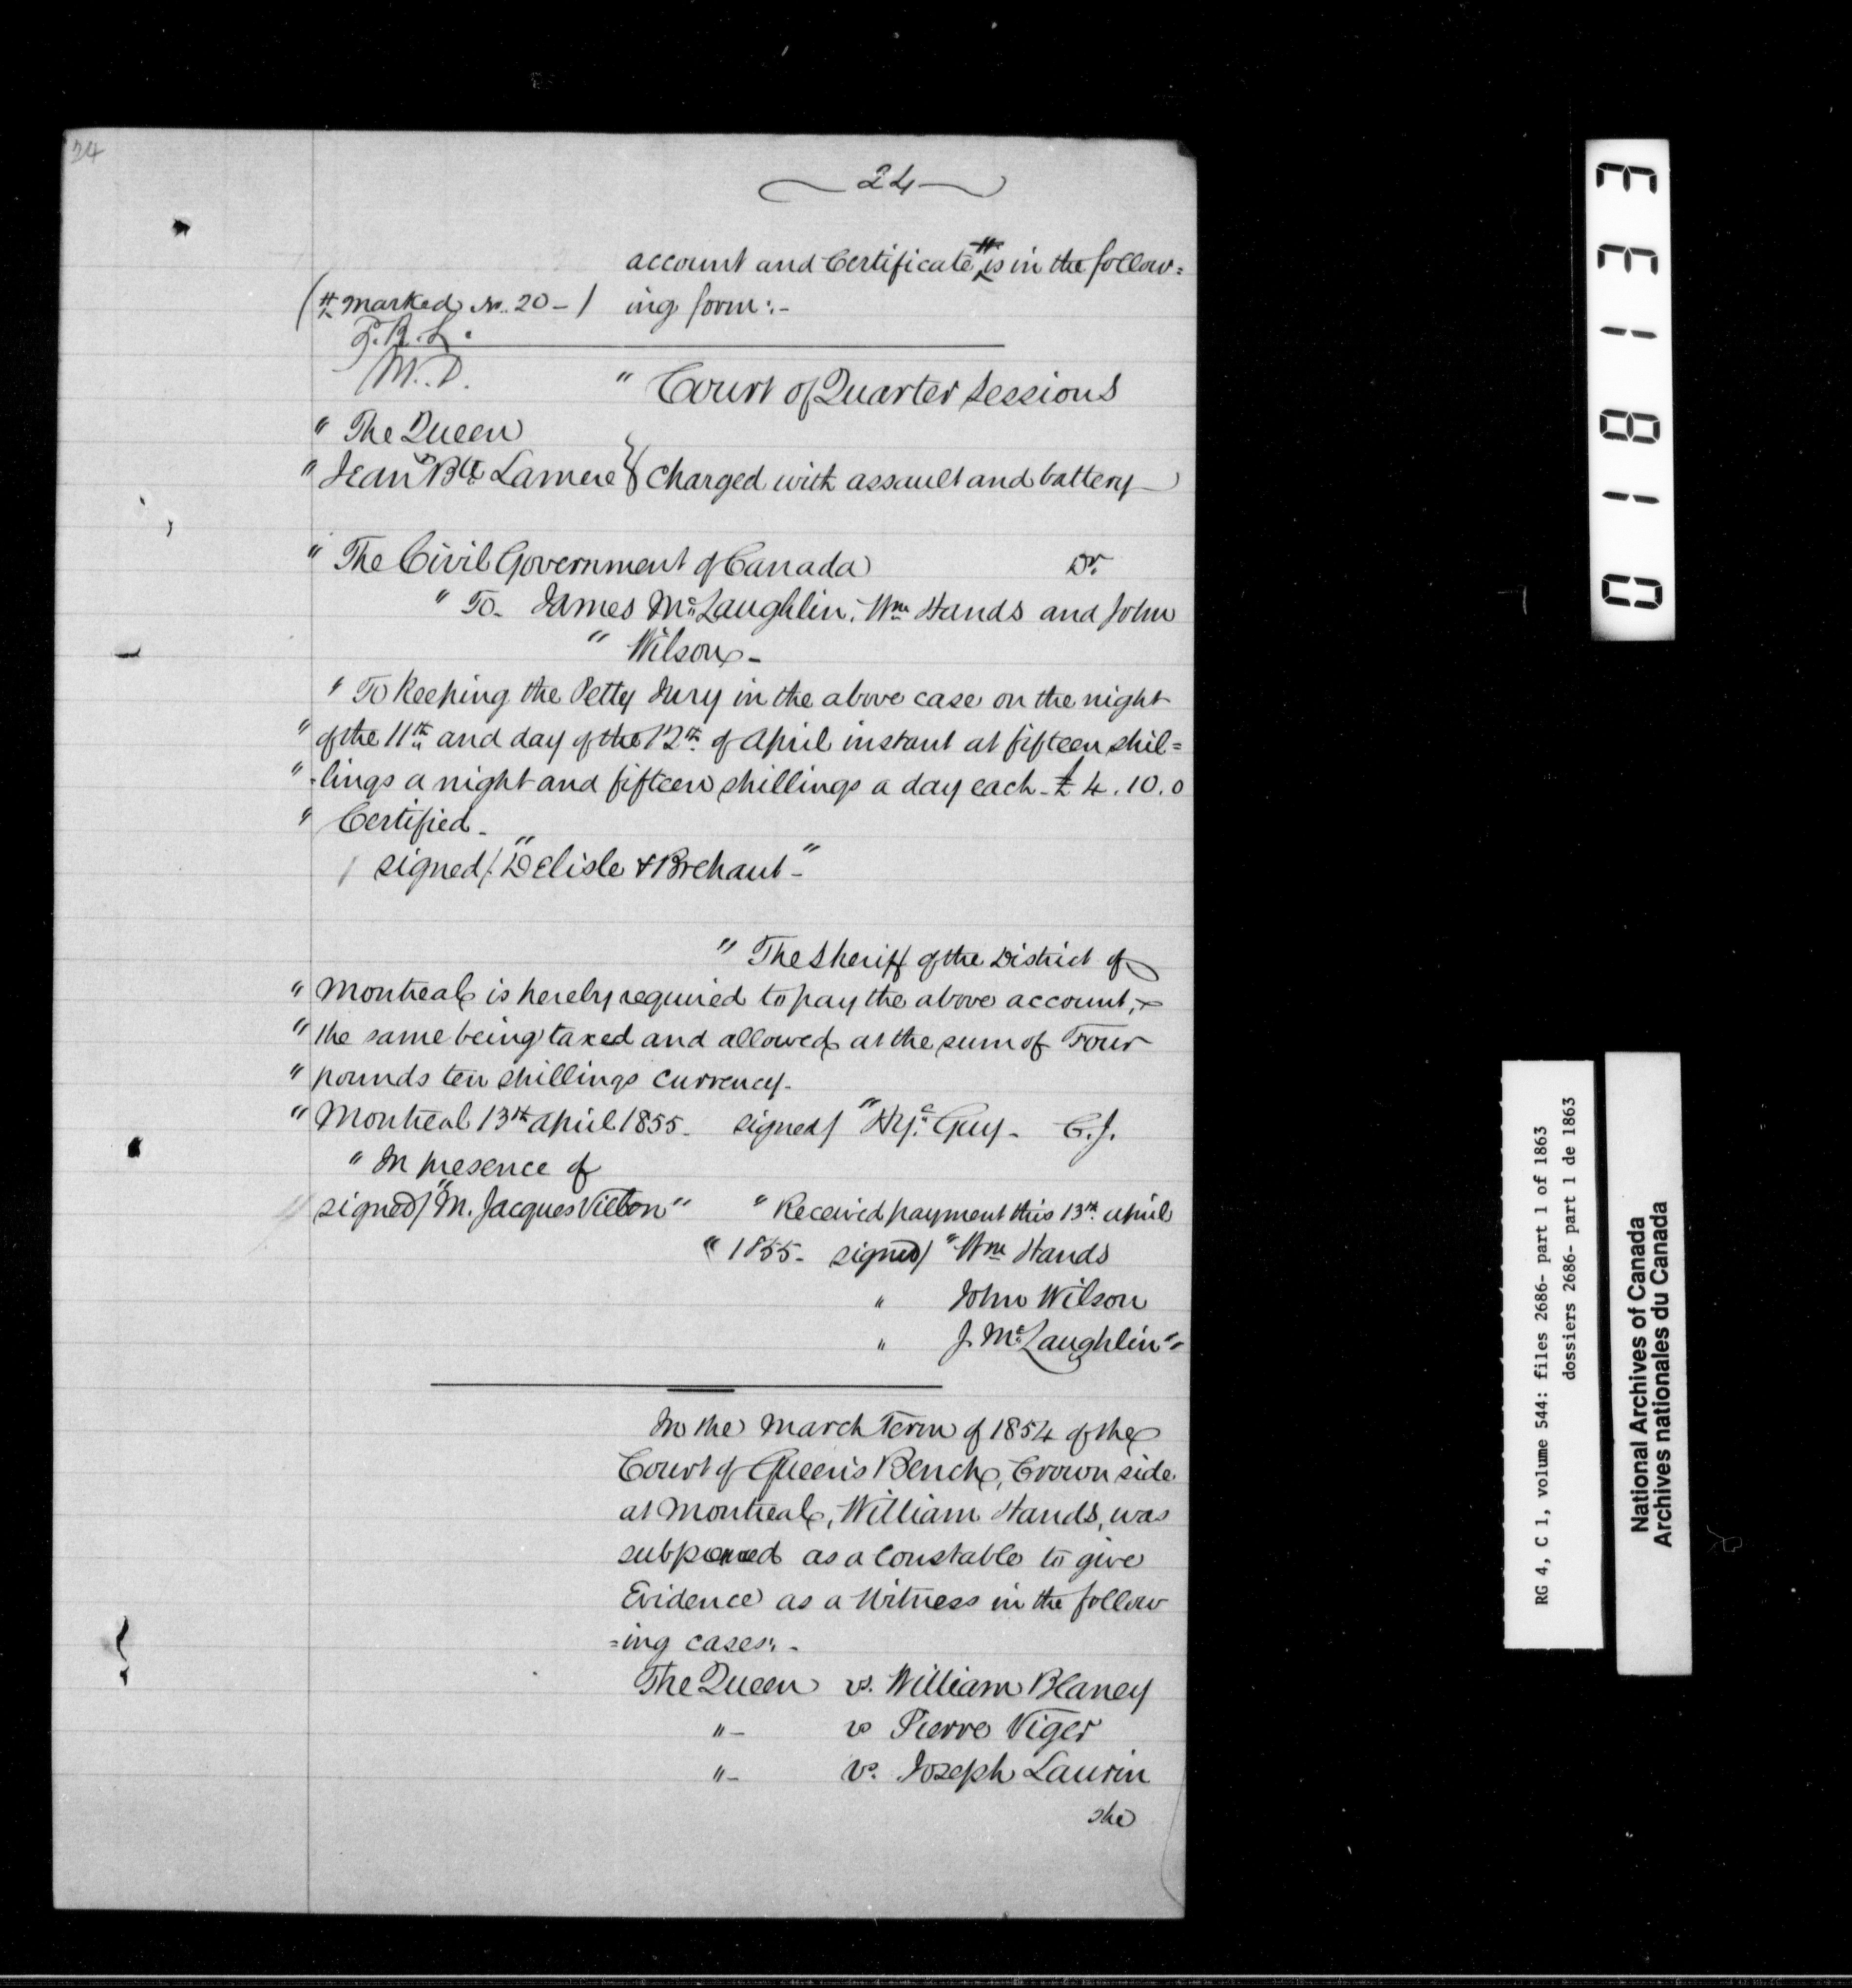 24
24
account and Certificate # is in the follow=
(# marked No. 20 - / ing form:-
M.D.
" Court of Quarter Sessions
" The Queen
" Jean Bte Lamere } Charged with assault and battery
" The Civil Government of Canada Dr.
" To James McLaughlin, Wm Hands and John
" Wilson -
" To keeping the Petty Jury in the above case on the night
" of the 11th and day of the 12th of April instant at fifteen shil=
" -lings a night and fifteen shillings a day each - £ 4.10.0
" Certified -
/ signed/ "Delisle & Brehaut" -
" The Sheriff of the District of
" Montreal is hereby required to pay the above account,
" the same being taxed and allowed at the sum of Four
" pounds ten shillings currency.
" Montreal 13th April 1855. signed/ "Hy. Guy - C.J.
" In presence of
signed/ "M. Jacques Vilbon" " Received payment this 13th April
" 1855 - signed/ "Wm Hands
" John Wilson
" J. McLaughlin"
In the March Term of 1854 of the
Court of Queen's Bench, Crown side
at Montreal, William Hands, was
subpoenaed as a Constable to give
Evidence as a Witness in the follow
=ing cases: -
The Queen vs. William Blaney
" - vs Pierre Viger
" - vs. Joseph Laurin
the
01813 3
RG 4, C 1, volume 544: files 2686- part 1 of 1863
dossiers 2686- part 1 de 1863
National Archives of Canada
Archives nationales du Canada